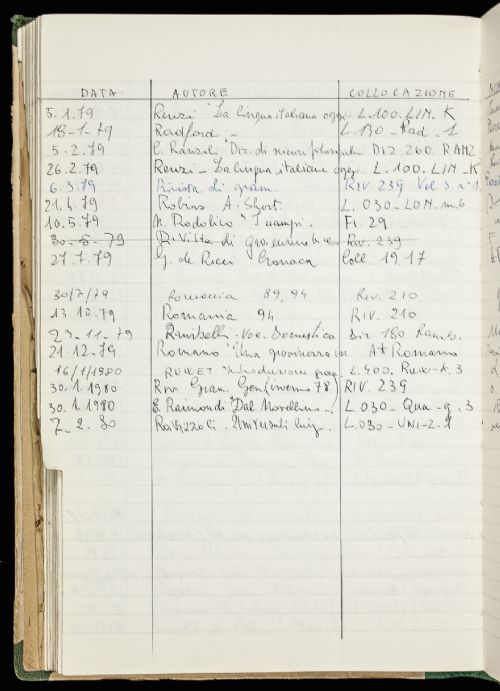 DATA AUTORE COLLOCAZIONE
5.1.79 Renzi "La lingua italiana oggi. L.100.LIN.K
18-1-79 Radford - L 130 - Rad. 1
5.2.79 E. Ranzoli "Diz. di scienze filosofiche DIZ 260. RANZ
26.2.79 Renzi - La lingua italiana oggi. L.100.LIN-K
6.3.79 Rivista di gram. RIV. 239 Vol 3. n° 1
21.4.79 Robins A. Short. L. 030-LON. m.6
10.5.79 N. Rodolico "I ciompi. FI. 29
30-5-79 Rivista di grammatica Riv. 239
27.7.79 G. de Ricci Cronaca Coll. 19 17
30/7/79 Romania 89, 94 Riv. 210
13 10.79 Romania 94 RIV. 210
-11-79 Rambelli. Voc. Domestico Diz. 180 Ramb.
21.12.79 Romano "Una Romano
16/1/1980 RUWET "Introduzione gram. L.400. Ruw-A.3
30.1.1980 Riv. Gram. Gen (inverno 78) RIV. 239
30.1.1980 E. Raimondi "Dal Novellino L 030-Qua-q.3
7_2_80 Ravazzoli. Universali ling. L.030-UNI-Z.1